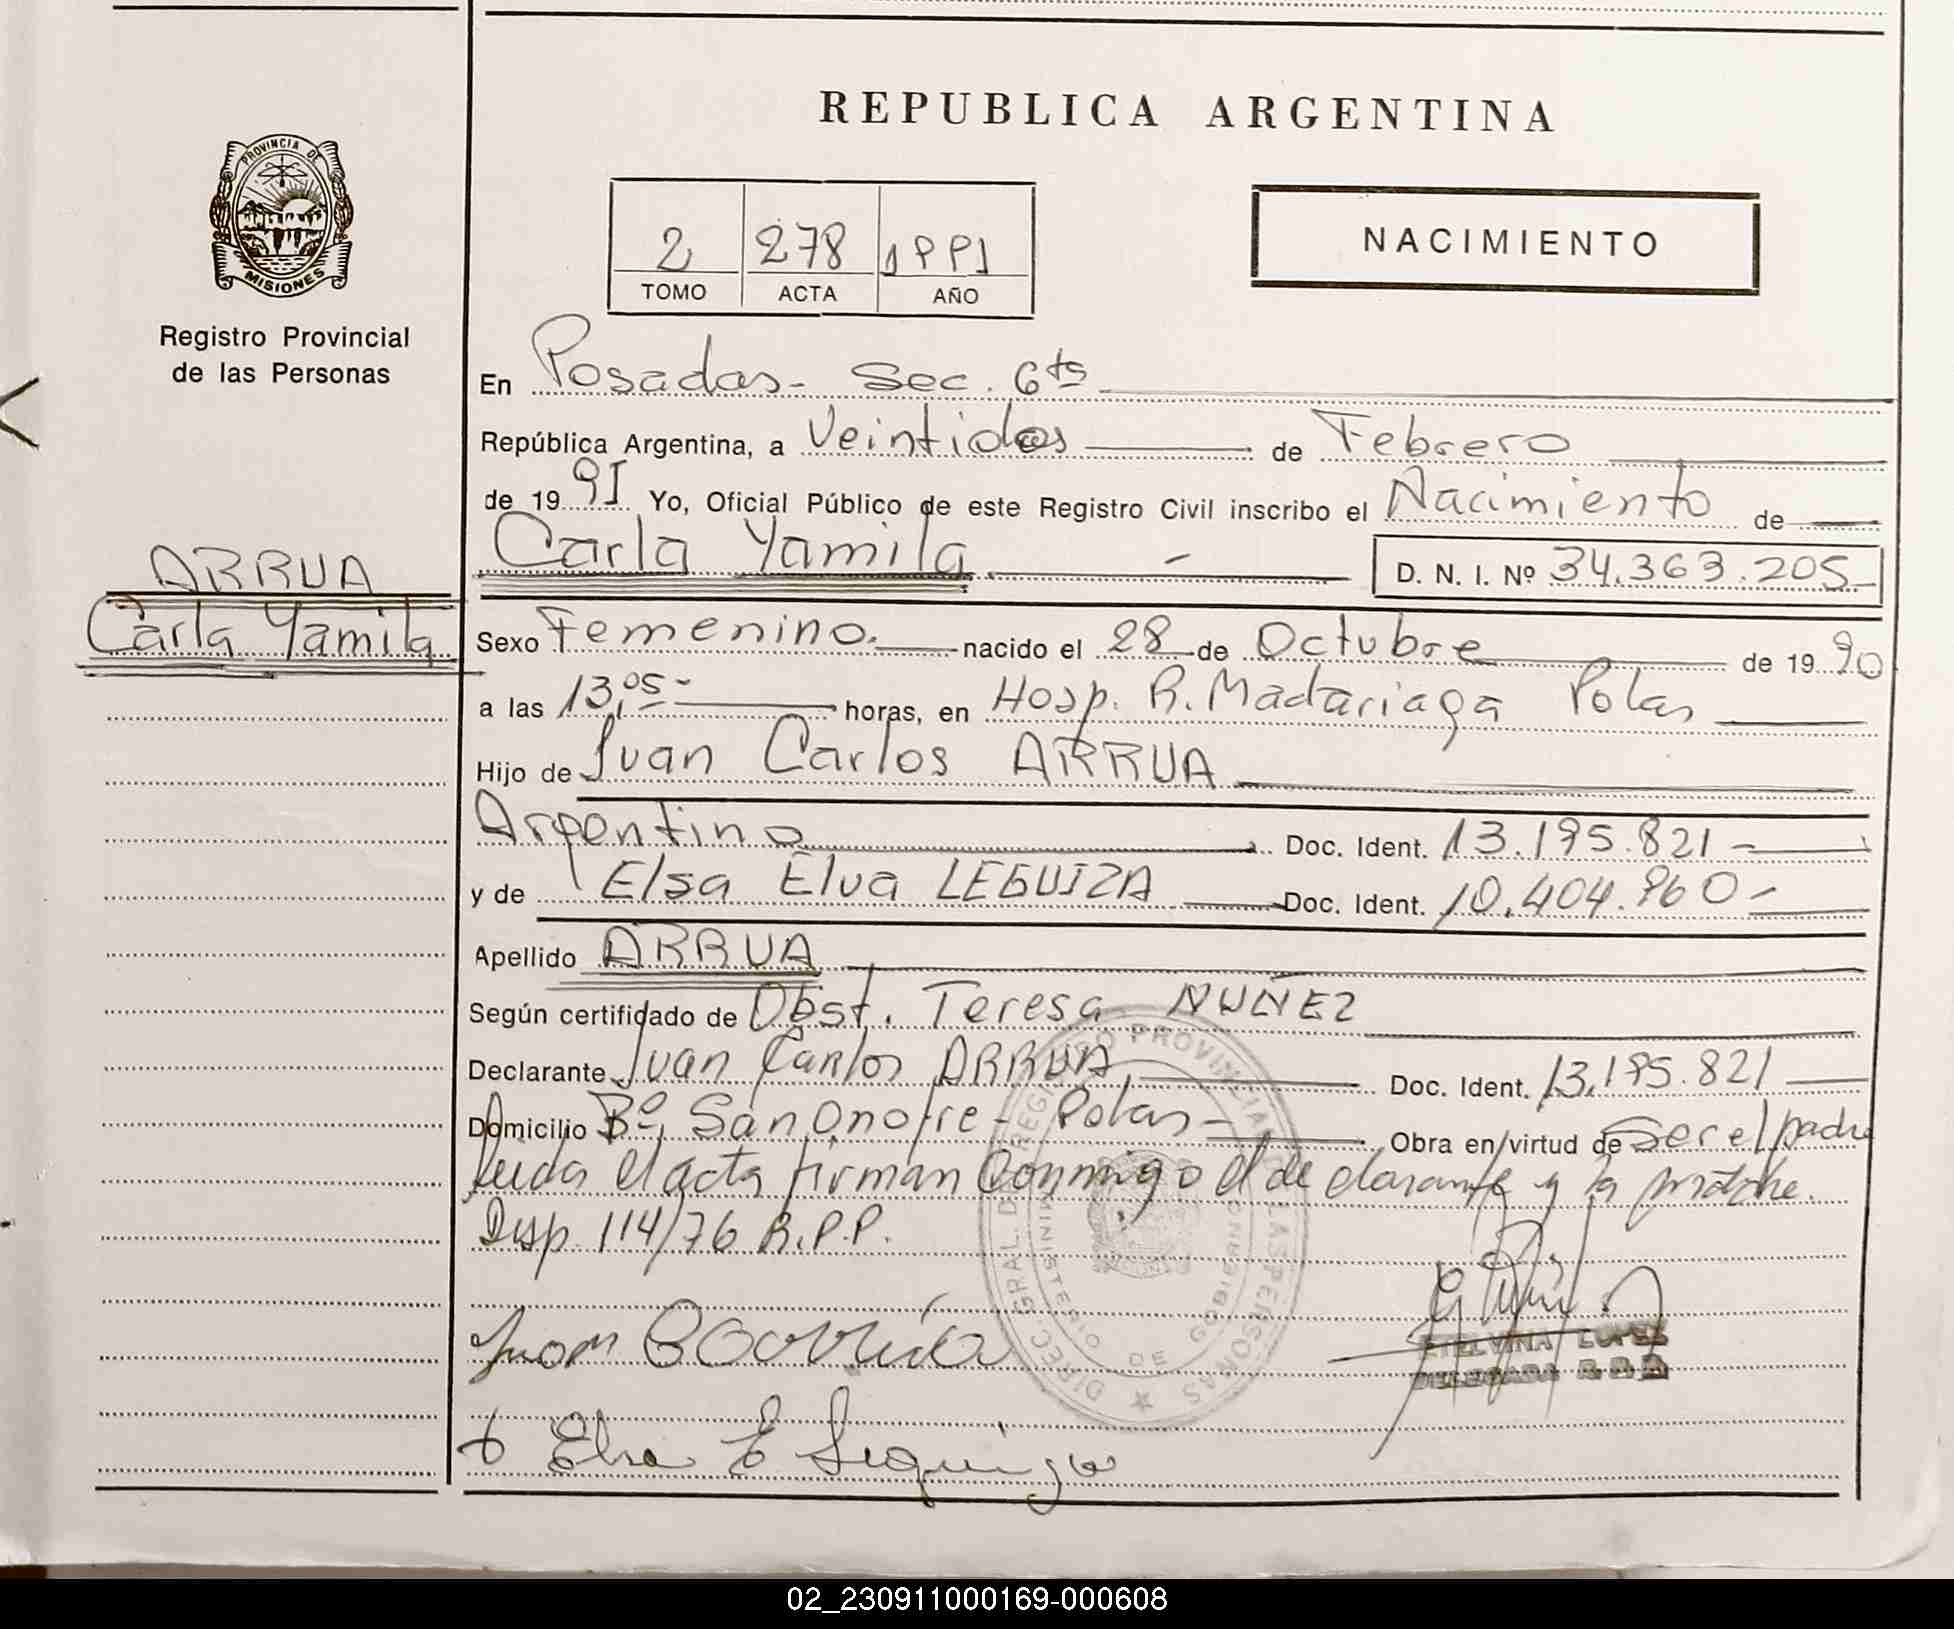 REPUBLICA ARGENTINA
PROVINCIA DE
MISIONES
Registro Provincial
de las Personas
2 278 1991
TOMO ACTA AÑO
NACIMIENTO
En Posadas - Sec. 6ta
República Argentina, a Veintidos de Febrero
de 1991 Yo, Oficial Público de este Registro Civil inscribo el Nacimiento de
ARRUA
Carla Yamila
Carla Yamila - D. N. I. Nº 34.363.205
Sexo Femenino. nacido el 28 de Octubre de 1990
a las 13,05 - horas, en Hosp. R. Madariaga Pdas
Hijo de Juan Carlos ARRUA
Argentino Doc. Ident. 13.195.821 -
y de Elsa Elva LEGUIZA Doc. Ident. 10.404.960 -
Apellido ARRUA
Según certificado de Obst. Teresa NUÑEZ
Declarante Juan Carlos ARRUA Doc. Ident. 13.195.821
Domicilio Bº San Onofre - Pdas - Obra en virtud de Ser el padre
leida el acta firman conmigo el declarante y la
Disp. 114/76 R.P.P.
DIREC. GRAL. DE REGISTRO PROVINCIAL DE LAS PERSONAS
MINISTERIO DE GOBIERNO
Juan C Arrua
ETELVINA LOPEZ
DELEGADA R.P.P.
Elsa E Leguiza
02_230911000169-000608